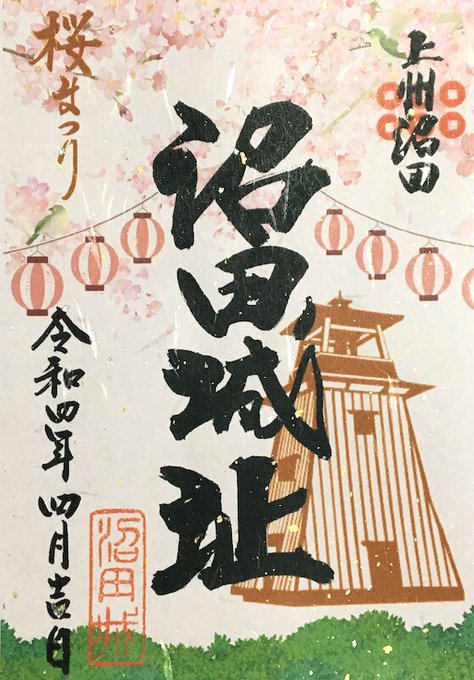 上州沼田
沼田城址
桜まつり
令和四年四月吉日
沼田城